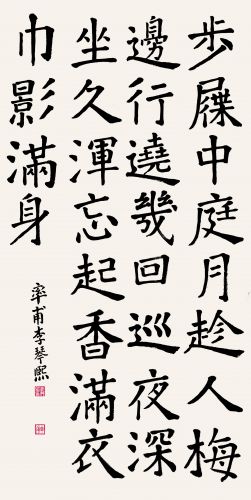 步屧中庭月趁人梅
邊行遶幾回巡夜深
坐久渾忘起香滿衣
巾影滿身
率甫李琴熙